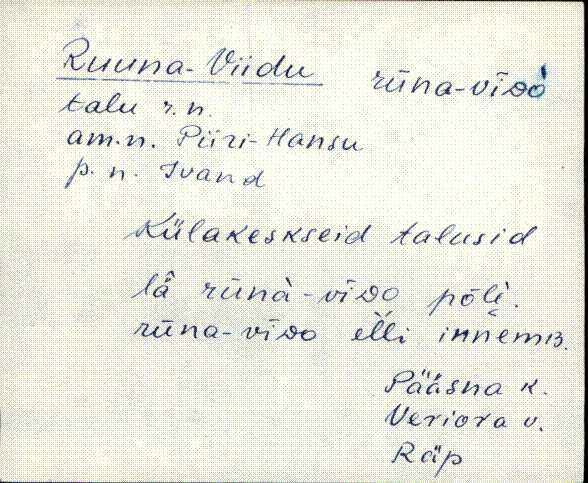 Ruuna-Viidu rūna-vīᴅò
talu r.n.
am.n. Piiri-Hansu
p.n. Ivand
Külakeskseid talusid
lǟ rūnà-vīᴅo põli.
rūna-vīᴅo elli innemʙ.
Pääsna k.
Veriora v.
Räp